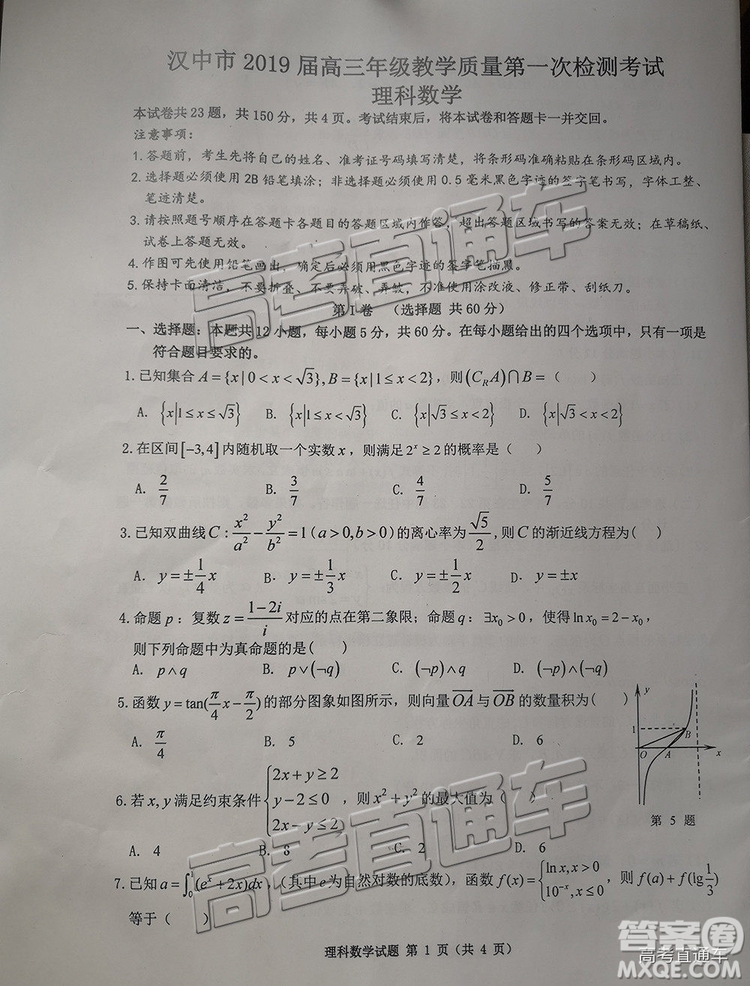 汉中市 2019 届高三年级教学质量第一次检测考试
理科数学
本试卷共 23 题，共 150 分，共 4 页。考试结束后，将本试卷和答题卡一并交回。
注意事项：
1. 答题前，考生先将自己的姓名、准考证号码填写清楚，将条形码准确粘贴在条形码区域内。
2. 选择题必须使用 2B 铅笔填涂；非选择题必须使用 0.5 毫米黑色字迹的签字笔书写，字体工整、
笔迹清楚。
3. 请按照题号顺序在答题卡各题目的答题区域内作答，超出答题区域书写的答案无效；在草稿纸、
试卷上答题无效。
4. 作图可先使用铅笔画出，确定后必须用黑色字迹的签字笔描黑。
5. 保持卡面清洁，不要折叠、不要弄破、弄皱，不准使用涂改液、修正带、刮纸刀。
第 I 卷 （选择题 共 60 分）
一、选择题：本题共 12 小题，每小题 5 分，共 60 分。在每小题给出的四个选项中，只有一项是
符合题目要求的。
1. 已知集合 A = {x | 0 < x < √3}, B = {x | 1 ≤ x < 2}，则 (C_R A)∩B = （ ）
A. {x|1 ≤ x ≤ √3} B. {x|1 ≤ x < √3} C. {x|√3 ≤ x < 2} D. {x|√3 < x < 2}
2. 在区间 [-3,4] 内随机取一个实数 x，则满足 2^x ≥ 2 的概率是（ ）
A. 2/7 B. 3/7 C. 4/7 D. 5/7
3. 已知双曲线 C : x²/a² - y²/b² = 1 (a > 0, b > 0) 的离心率为 √5/2，则 C 的渐近线方程为（ ）
A. y = ±1/4 x B. y = ±1/3 x C. y = ±1/2 x D. y = ±x
4. 命题 p：复数 z = (1-2i)/i 对应的点在第二象限；命题 q：∃x₀ > 0，使得 ln x₀ = 2 - x₀，
则下列命题中为真命题的是（ ）
A. p∧q B. p∨(¬q) C. (¬p)∧q D. (¬p)∧(¬q)
5. 函数 y = tan(π/4 x - π/2) 的部分图象如图所示，则向量 OA 与 OB 的数量积为（ ）
A. π/4 B. 5 C. 2 D. 6
y
1
B
O
A
x
第 5 题
6. 若 x, y 满足约束条件 {2x + y ≥ 2, y - 2 ≤ 0, 2x - y ≤ 2，则 x² + y² 的最大值为（ ）
A. 4 B. 8 C. 2 D. 6
7. 已知 a = ∫₀¹(e^x + 2x)dx，（其中 e 为自然对数的底数），函数 f(x) = {ln x, x > 0; 10^(-x), x ≤ 0，则 f(a) + f(lg 1/3)
等于（ ）
理科数学试题 第 1 页（共 4 页）
高考直通车
高考直通车
答案圈
高考直通车
MXQE.COM